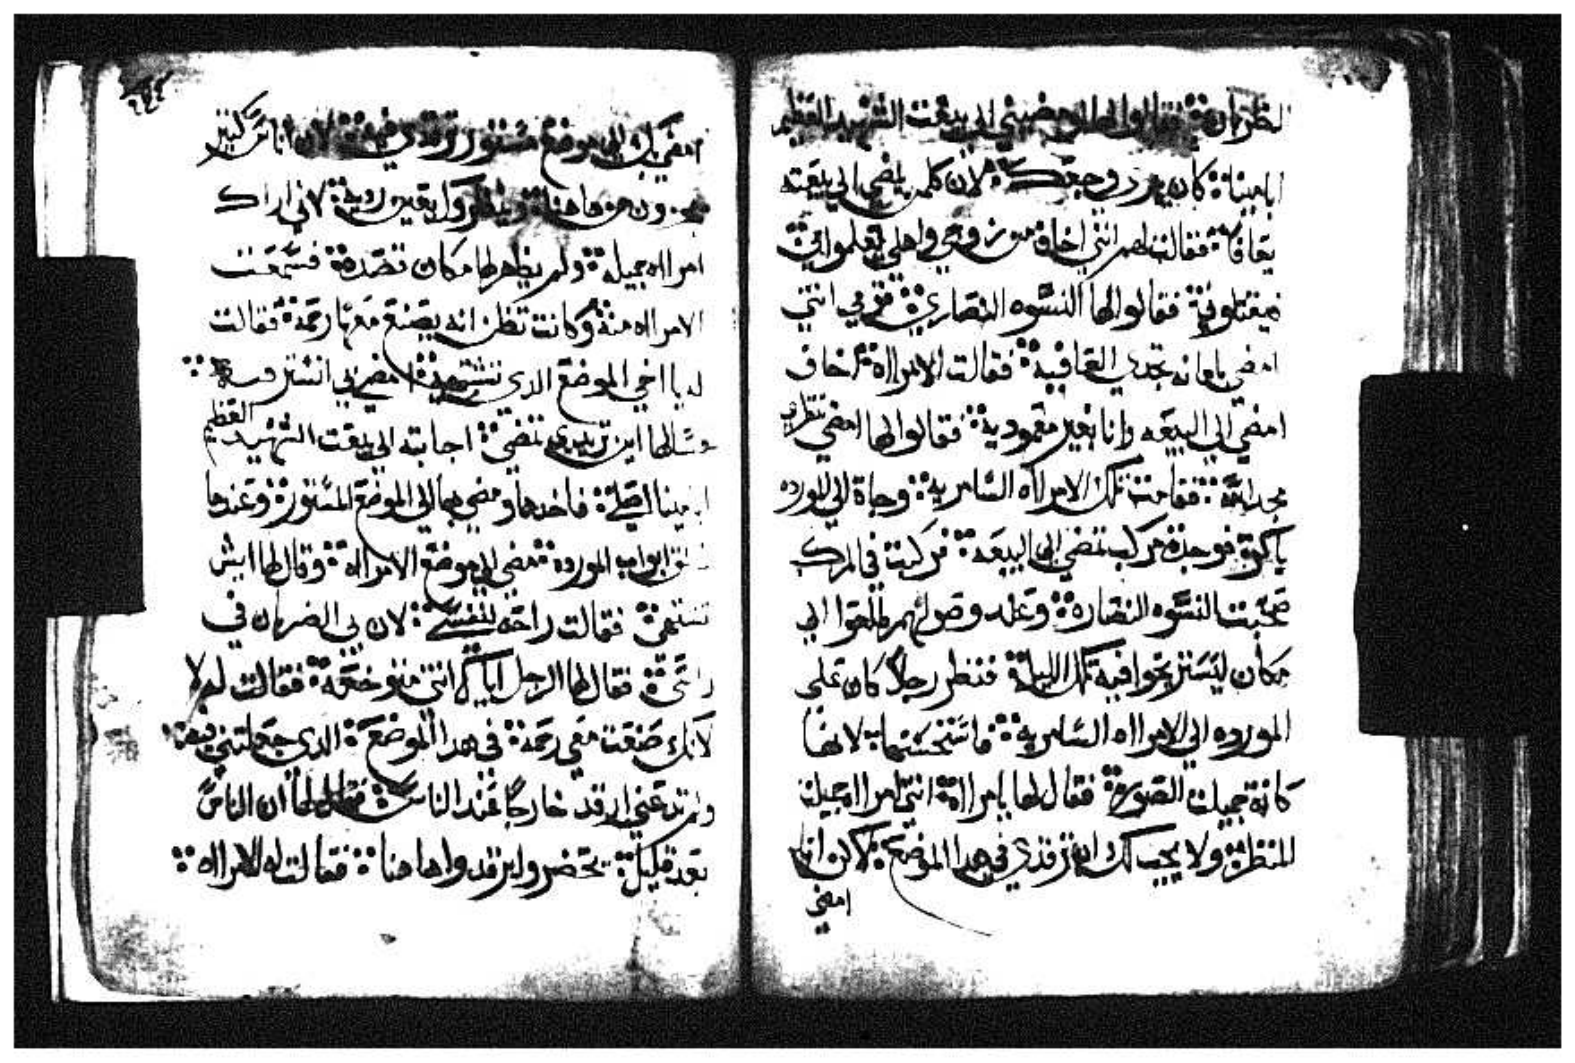 الضربان فقالوا لها لو مضيتي الي بيعت الشهيد العظيم
ابامينا كان يبرد وجعك لان كلمن يمضي الي بيعته
يتعافا فقالت لهم انني اخاف من زوجي واهلي ليعلموا بي
فيقتلوني فقالوا لها النسوه النصاري قومي انتي
امضي بامانه تجدي العافيه فقالت الامرااه اخاف
امضي الي البيعه وانا بغير معموديه فقالوا لها امضي تنظري
مجد الله فقامت تلك الامرااه السامريه وجاة الي الموردة
باكرة فوجدة مركب تمضي الي البيعه فركبت في المركب
صحبت النسوه النصارة وعند وصولهم طلعوا الي
مكان ليستريحوا فيه تلك الليلة فنظر رجلا كان علي
الموردة الي الامرااه السامرية فاستحسنها لانها
كانة جميلت الصورة فقال لها يامرااة انتي امرااه جميلت
المنظر ولا يجب لك ان ترقدي في هدا الموضع لكن انا
امضي
٢٤٤
امضي بك الي موضع مستور ترقدي فيه لان اناس كتير
يجوزون من هاهنا وينظروك بعين ردية لاني اراك
امرااه جميله ولم يظهر لها مكان قصده فسمعت
الامرااه منه وكانت تظن انه يصنع معها رحمة فقالت
له يا اخي الموضع الدي تشتهيه امضي بي استتر فيه
وسالها اين تريدي تمضي اجابته الي بيعت الشهيد العظيم
ابامينا اصلي فاخدها ومضي بها الي الموضع المستور وعندها
غلق ابواب الموردة مضي الي موضع الامرااة وقال لها ايش
تشتهي فقالت راحه لنفسي لان بي الضربان في
راسي فقال لها الرجل اياك انتي متوجعه فقالت له لا
لانك صنعت معي رحمة في هدا الموضع الدي جعلتني فيه
ولم تدعني ارقد خارجا عند الناس فقال لها ان الناس
بعد قليل تحضر وايرقدوا هاهنا فقالت له الامرااه